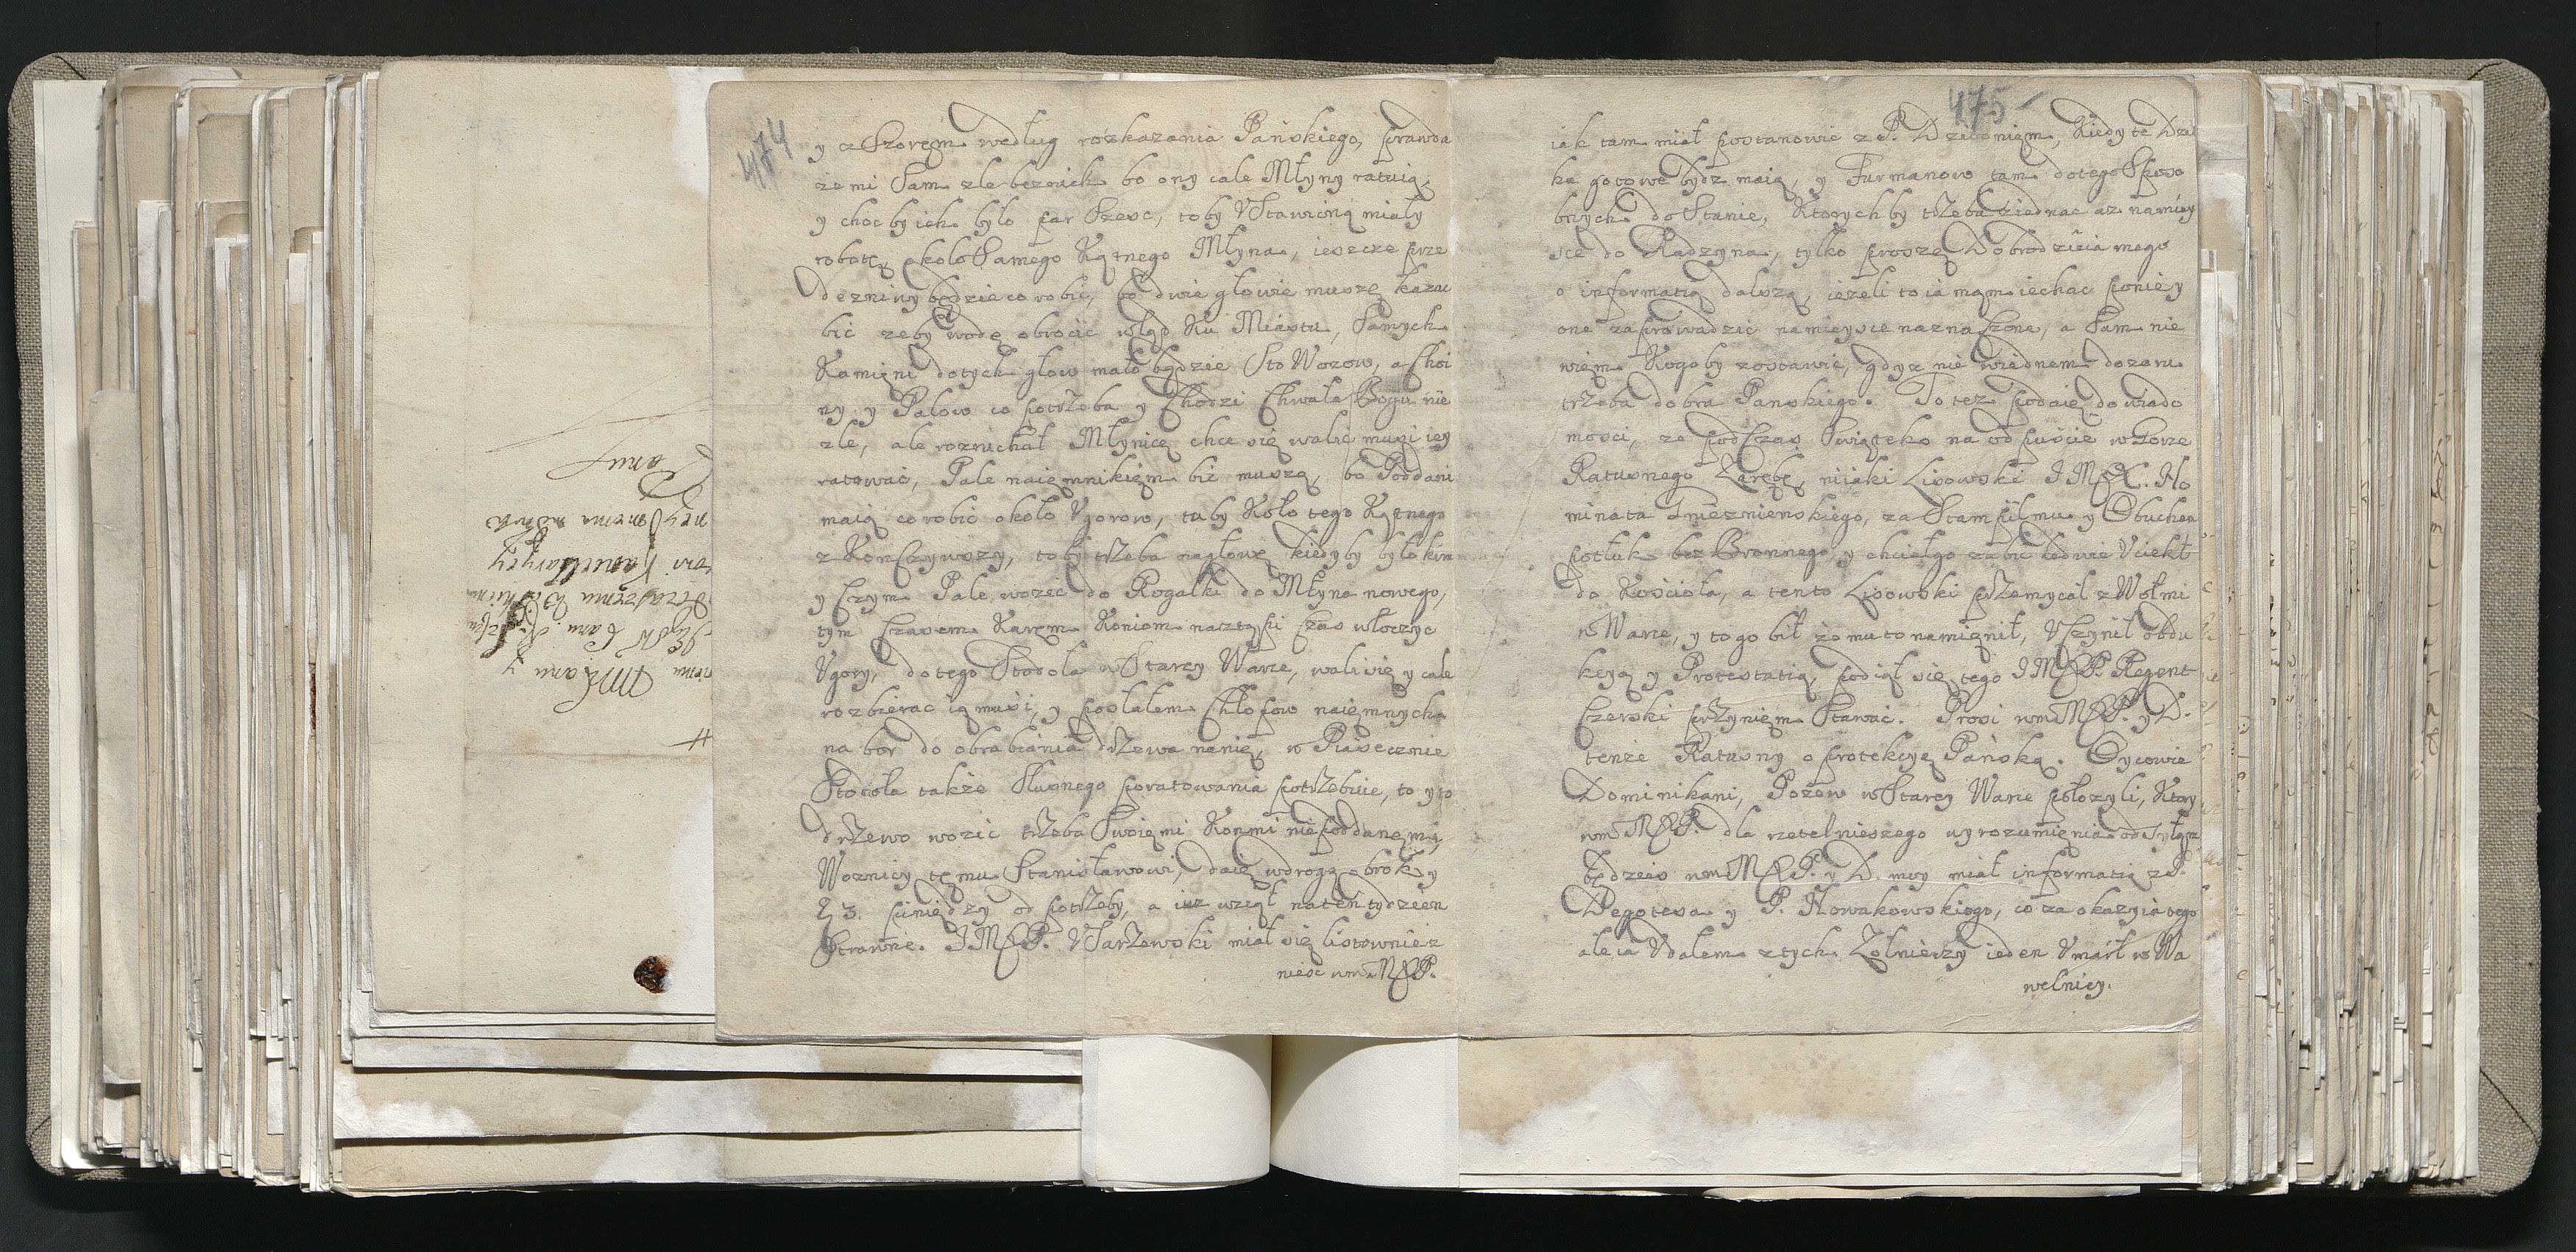 474
y z Szorem według rozkazania Pańskiego, prawda
że mi Sam zle bez nich bo ony cale Młyny ratuią,
y choc by ich było par Szesc, to by Vstawiczną miały
robotę, około Samego Kątnego Młyna, ieszcze prze
de zniwy będzie co robic, bo dwie głowie muszę kazac
bić zeby wodę obrocic wląd Ku Miastu, Samych
Kamięni do tych głow mało będzie Sto Wozow, a Choi
ny y Palow co potrzeba y Chodzi Chwała Bogu nie
zle, ale rozruchał Młynicę chce się walic muszę iey
ratowac, Pale naięmnikięm bić muszą, bo Poddani
maią co robic około Vgorow, tu by Koło tego Kątnego
z Konczywszy, to by trzeba na głowę kiedy by było kim
y Czym Pale wozic do Rogalki do Młyna nowego,
tym Czasem Karem Koniom naztąpi Czas włoczyc
Vgory, do tego Stodoła w Starey Warce, wali się y cale
rozbierac ią musi, y posłałem Chłopow naięmnych
na bor do obrabiania drzewa na nię, w Piasecznie
Stodoła także Słusznego poratowania potrzebuie, to y to
drzewo wozic trzeba Swoięmi Konmi nie poddanęmi,
Woznicy tęmu Stanisławowi, daię w drogę obrok y
3. piniędzy od potrzeby, a iuz wziął na ten tydzien
Strawne. I M P. VSarzewski miał się listownie z
niesc wm M P.
475
iak tam miał postanowic z P. Dzibonięm, Kiedy te Dzi
ka gotowe bydz maią, y Furmanow tam do tego Sposo
bnych doStanie, Ktorych by trzeba ziednac az na miey
sce do Radzyna, tylko proszę Dobrodzieia mego
o informatią dalszą, ieżeli to ia mąm iechac po nie y
one zaprowadzic na mieysce naznaczone, a Sam nie
więm Kogo by zostawic, gdyz nie wiednem dozoru
trzeba dobra Panskiego. To tez podaię do wiado
mosci, ze podczas Swiątek na odpuscie w Gorze
Ratusnego Zarębę, niiaki Lisowski I M X. No
minata Gnieznienskiego, za Stampilmu y Obuchem
potłuk bez Bronnego, y chciał go zabic ledwie Vciekł
do Kosciola, a ten to Lisowski przemycał z Wołmi
w Warce, y to go bił że mu to namięnił, Vczynił obdu
kcyą y Protestatią, podiął się tego I M P. Regent
Czerski przy nięm Stawac. Prosi wm M P. y D.
tenże Ratusny o protekcyę Pańską. Oycowie
Dominikani, Pozew w Starey Warce położyli, Ktory
wm M P. dla rzetelnieszego wyrozumięnia odsyłąm
będziesz wm M P. y D. moy miał informatią z P.
Degotesa y P. Nowakowskiego, co za okazyia tego
ale ia Vdałem z tych Zołnierzy ieden Vmarł w Wa
welnicy.